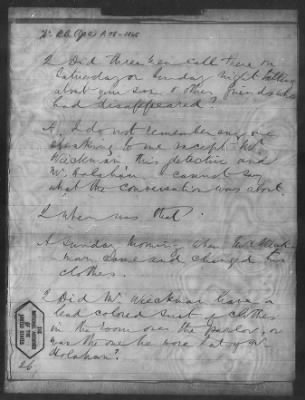 Q. Did three men call there on
Saturday or Sunday night talking
about your son & other friends who
had disappeared?
A. I do not remember any one
speaking to me except Mr
Weichman, this detective and
Mr Holahan. I cannot say
what the conversation was about.
Q. When was that.
A. Sunday morning when Mr Weich
man came and changed his
clothes.
Q. Did Mr Weichman leave a
lead colored suit of clothes
in the room over the parlor, or
was the one he wore that of Mr
Holahan?
26
THE
NATIONAL ARCHIVES
OF THE
UNITED STATES